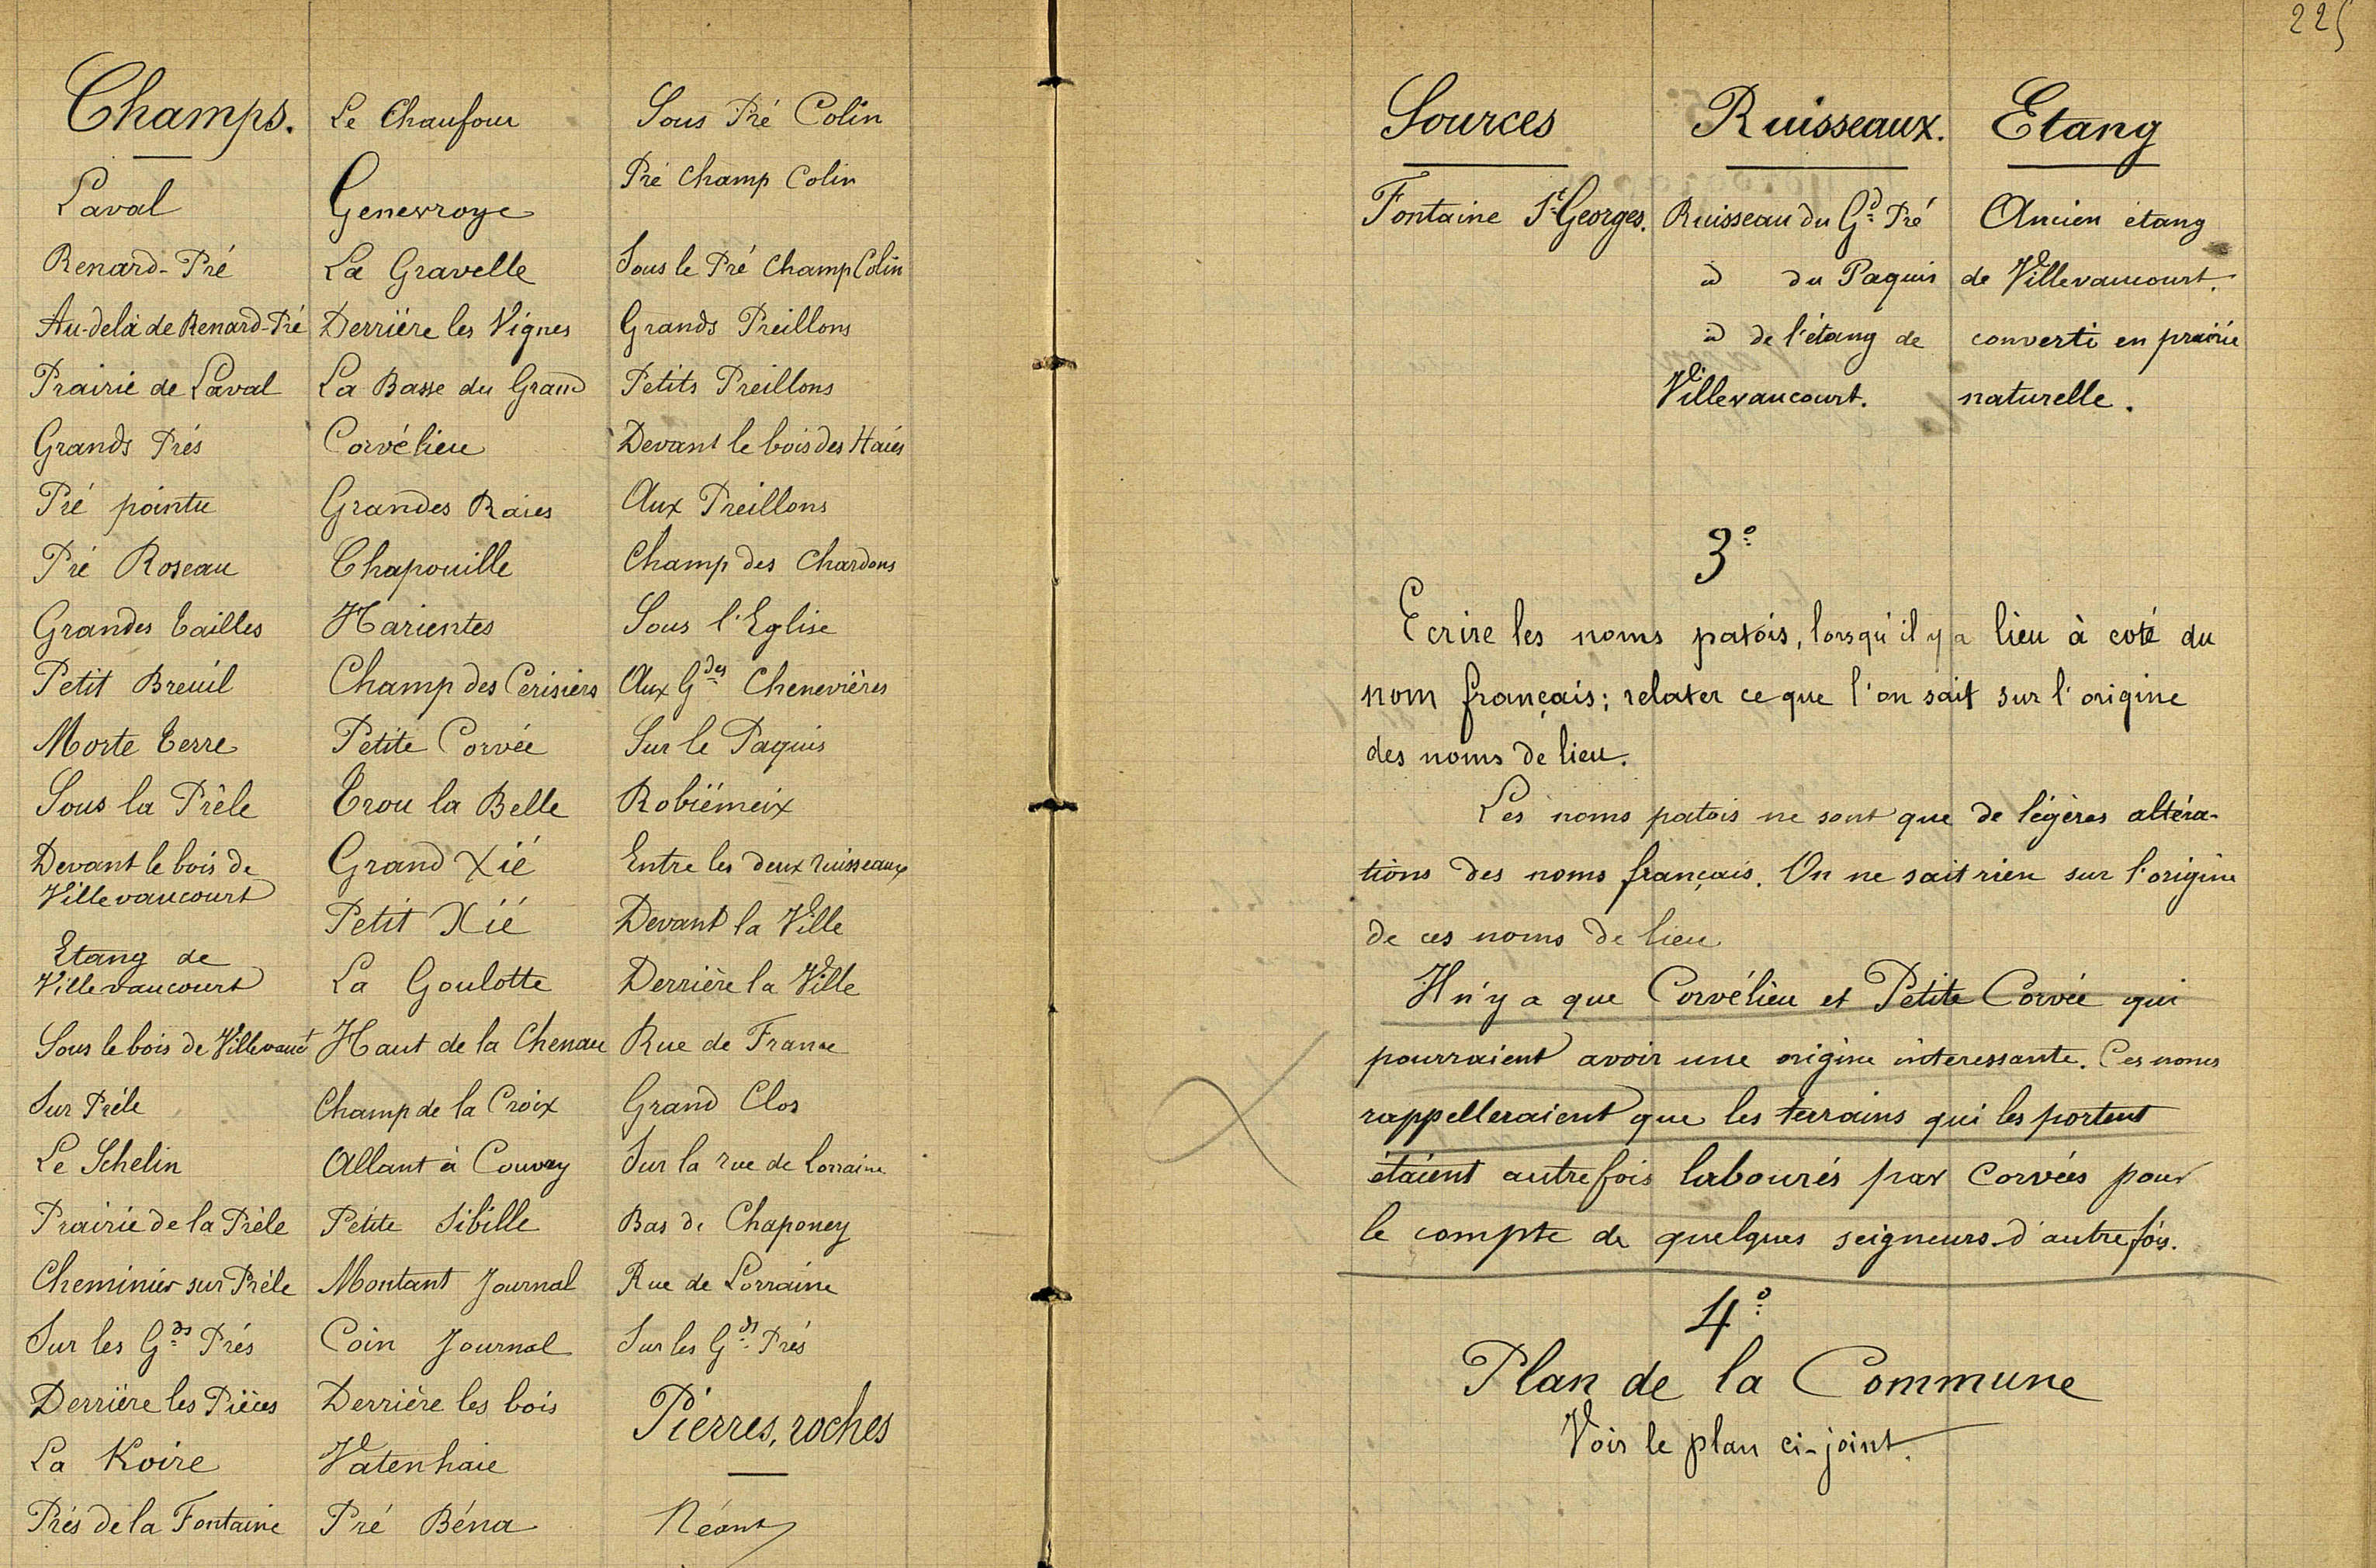 Champs.
Laval
Renard-Pré
Au-delà de Renard-Pré
Prairie de Laval
Grands Prés
Pré pointu
Pré Roseau
Grandes Tailles
Petit Breuil
Morte Terre
Sous la Prêle
Devant le bois de
Villevaucourt
Etang de
Villevaucourt
Sous le bois de Villevauct
Sur Prêle
Le Schelin
Prairie de la Prêle
Cheminier sur Prêle
Sur les Gds Prés
Derrière les Pièces
La Koire
Prés de la Fontaine
Le Chaufour
Genevroye
La Gravelle
Derrière les Vignes
La Basse du Grand
Corvélieu
Grandes Raies
Chapouille
Harientes
Champ des Cerisiers
Petite Corvée
Trou la Belle
Grand Xié
Petit Xié
La Goulotte
Haut de la Chenau
Champ de la Croix
Allant à Couvay
Petite Sibille
Montant Journal
Coin Journal
Derrière les bois
Vatenhaie
Pré Béna
Sous Pré Colin
Pré Champ Colin
Sous le Pré Champ Colin
Grands Preillons
Petits Preillons
Devant le bois des Haies
Aux Preillons
Champ des Chardons
Sous l'Eglise
Aux Gdes Chenevières
Sur le Paquis
Robiémeix
Entre les deux ruisseaux
Devant la Ville
Derrière la Ville
Rue de France
Grand Clos
Sur la rue de Lorraine
Bas de Chaponey
Rue de Lorraine
Sur les Gds Prés
Pierres, roches
Néant
225
Sources
Fontaine St Georges.
Ruisseaux.
Ruisseau du Gd Pré
id du Paquis
id de l'étang de
Villevaucourt.
Etang
Ancien étang
de Villevaucourt.
converti en prairie
naturelle.
3°
Ecrire les noms patois, lorsqu'il y a lieu à coté du
nom français; relater ce que l'on sait sur l'origine
des noms de lieu.
Les noms patois ne sont que de légères altéra-
tions des noms français. On ne sait rien sur l'origine
de ces noms de lieu
Il n'y a que Corvélieu et Petite Corvée qui
pourraient avoir une origine intéressante. Ces noms
rappelleraient que les terrains qui les portent
étaient autrefois labourés par corvées pour
le compte de quelques seigneurs d'autrefois.
4°
Plan de la Commune
Voir le plan ci-joint.